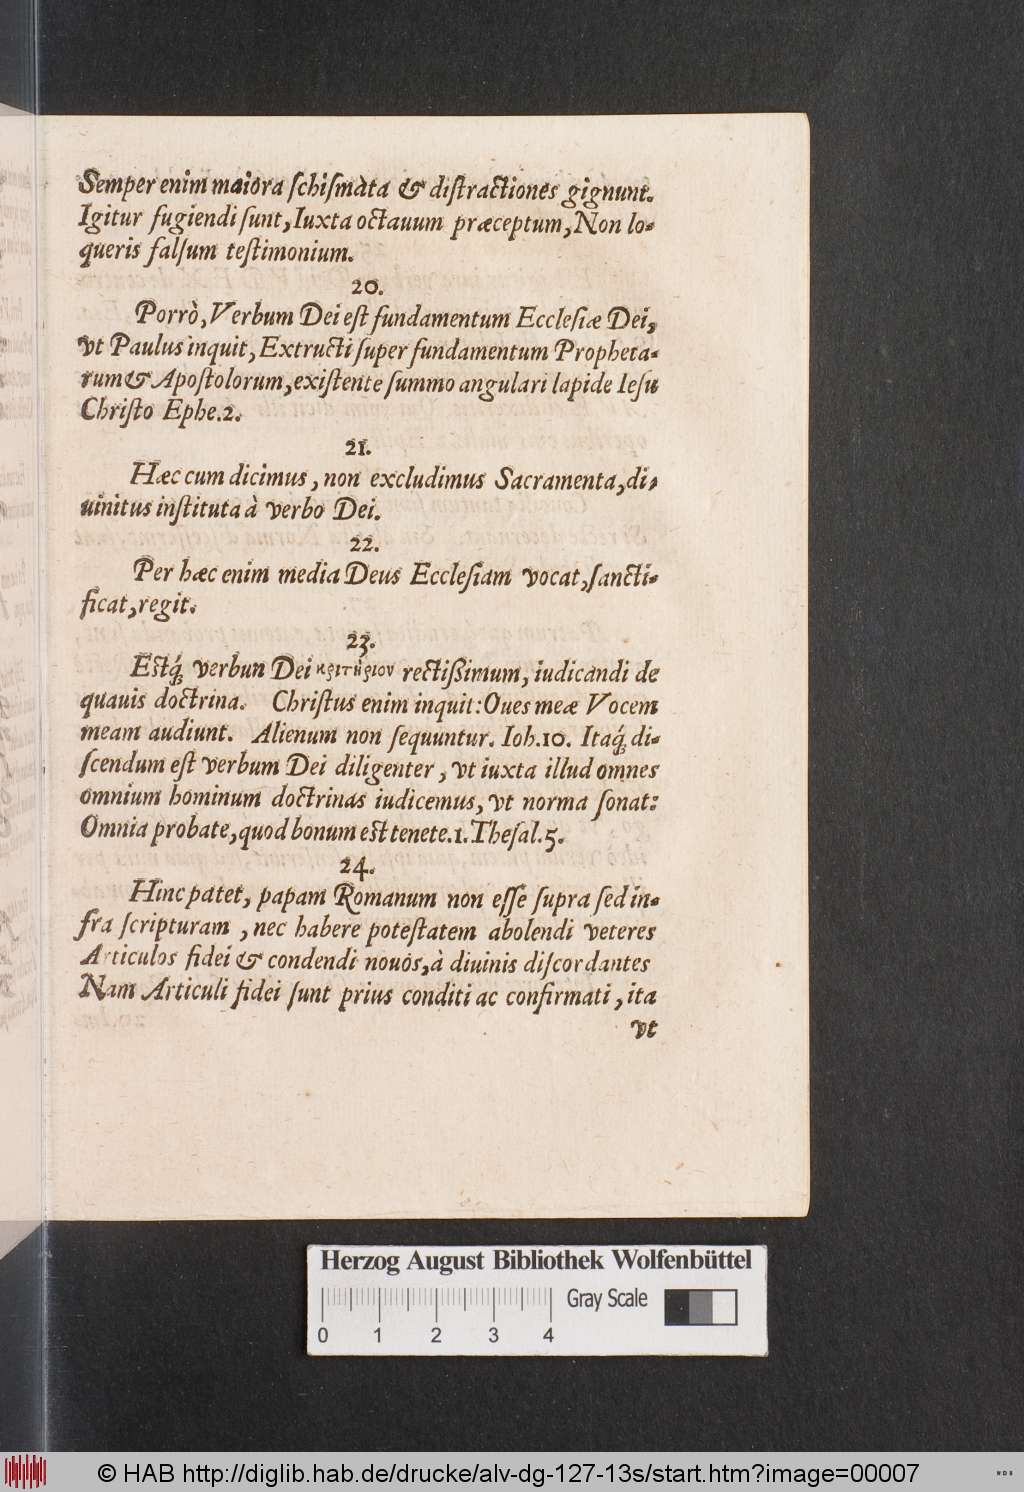 Semper enim maiora ſchiſmàta & diſtractiones gignunt.
Igitur fugiendi ſunt, Iuxta octauum præceptum, Non lo-
queris falſum teſtimonium.
20.
Porrò, Verbum Dei eſt fundamentum Eccleſiæ Dei,
vt Paulus inquit, Extructi ſuper fundamentum Propheta-
rum & Apoſtolorum, exiſtente ſummo angulari lapide Ieſu
Chriſto Ephe. 2.
21.
Hæc cum dicimus, non excludimus Sacramenta, di-
uinitus inſtituta à verbo Dei.
22.
Per hæc enim media Deus Eccleſiam vocat, ſancti-
ficat, regit.
23.
Eſtq́ꝫ verbun Dei κριτήριον rectiſſimum, iudicandi de
quauis doctrina. Chriſtus enim inquit: Oues meæ Vocem
meam audiunt. Alienum non ſequuntur. Ioh. 10. Itaq́ꝫ di-
ſcendum eſt verbum Dei diligenter, vt iuxta illud omnes
omnium hominum doctrinas iudicemus, vt norma ſonat:
Omnia probate, quod bonum eſt tenete. 1. Theſal. 5.
24.
Hinc patet, papam Romanum non eſſe ſupra ſed in-
fra ſcripturam, nec habere poteſtatem abolendi veteres
Articulos fidei & condendi nouos, à diuinis diſcordantes
Nam Articuli fidei ſunt prius conditi ac confirmati, ita
vt
Herzog August Bibliothek Wolfenbüttel
Gray Scale
0 1 2 3 4
© HAB http://diglib.hab.de/drucke/alv-dg-127-13s/start.htm?image=00007